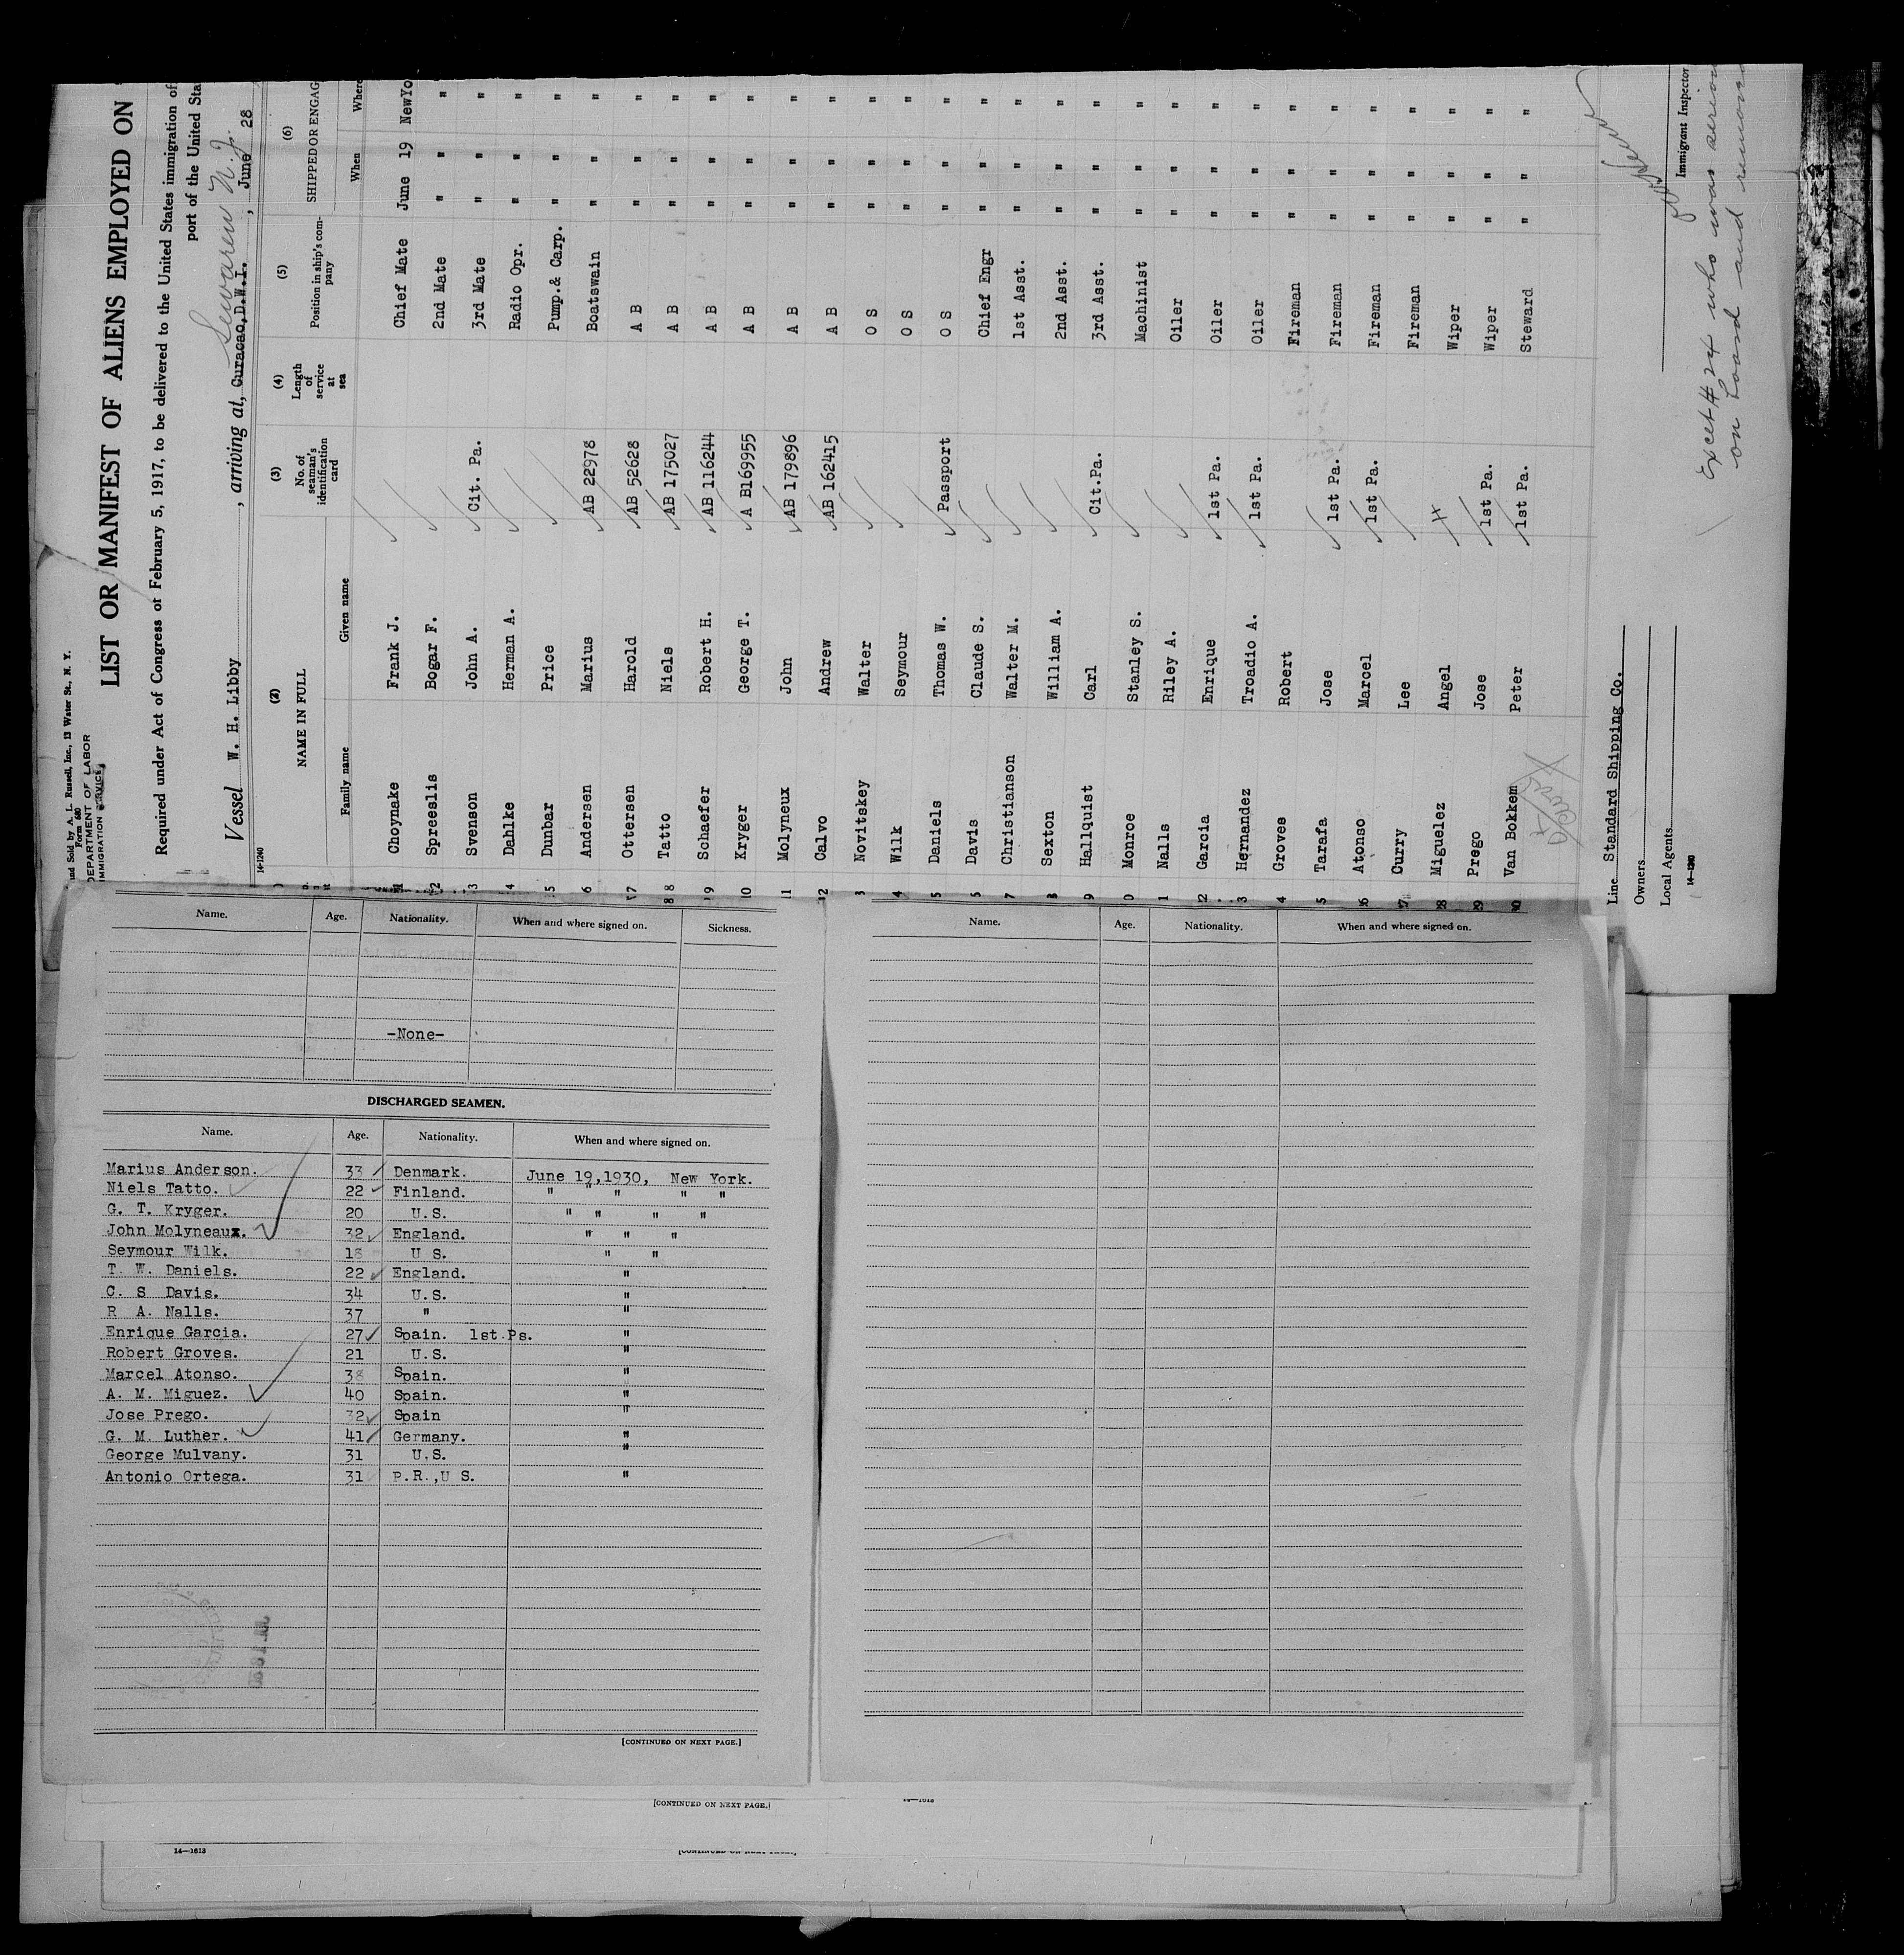 and Sold by A. L. Russell, Inc., 13 Water St., N. Y.
Form 680
DEPARTMENT OF LABOR
IMMIGRATION SERVICE
LIST OR MANIFEST OF ALIENS EMPLOYED ON
Required under Act of Congress of February 5, 1917, to be delivered to the United States immigration of
port of the United Sta
Sewaren N.J.
Vessel W. H. Libby, arriving at, Curacao, D.W.I., June 28
14-1240
(2) (3) (4) (5) (6)
NAME IN FULL No. of seaman's identification card Length of service at sea Position in ship's company SHIPPED OR ENGAG
Family name Given name When Where
1 Choynake Frank J. Chief Mate June 19 NewYo
2 Spreeslis Bogar F. 2nd Mate " " "
3 Svenson John A. Cit. Pa. 3rd Mate " " "
4 Dahlke Herman A. Radio Opr. " " "
5 Dunbar Price Pump.& Carp. " " "
6 Andersen Marius AB 22978 Boatswain " " "
7 Ottersen Harold AB 52628 A B " " "
8 Tatto Niels AB 175027 A B " " "
9 Schaefer Robert H. AB 116244 A B " " "
10 Kryger George T. A B169955 A B " " "
11 Molyneux John AB 179896 A B " " "
12 Calvo Andrew AB 162415 A B " " "
3 Novitskey Walter O S " " "
4 Wilk Seymour O S " " "
5 Daniels Thomas W. Passport O S " " "
Davis Claude S. Chief Engr " " "
7 Christianson Walter M. 1st Asst. " " "
8 Sexton William A. 2nd Asst. " " "
9 Hallquist Carl Cit.Pa. 3rd Asst. " " "
0 Monroe Stanley S. Machinist " " "
1 Nalls Riley A. Oiler " " "
2 Garcia Enrique 1st Pa. Oiler " " "
3 Hernandez Troadio A. 1st Pa. Oiler " " "
4 Groves Robert Fireman " " "
5 Tarafa Jose 1st Pa. Fireman " " "
26 Atonso Marcel 1st Pa. Fireman " " "
27 Curry Lee Fireman " " "
28 Miguelez Angel Wiper " " "
29 Prego Jose 1st Pa. Wiper " " "
30 Van Bokkem Peter 1st Pa. Steward " " "
Line Standard Shipping Co.
Owners
Local Agents
14-1240
Immigrant Inspector
Except # 24 who was
on board and
Name. Age. Nationality. When and where signed on. Sickness.
-None-
DISCHARGED SEAMEN.
Name. Age. Nationality. When and where signed on.
Marius Anderson. 33 Denmark. June 19,1930, New York.
Niels Tatto. 22 Finland. " " " " "
G. T. Kryger. 20 U.S. " " " "
John Molyneaux. 32 England. " " "
Seymour Wilk. 18 U S. " "
T. W. Daniels. 22 England. "
C. S Davis. 34 U.S. "
R A. Nalls. 37 " "
Enrique Garcia. 27 Spain. 1st.Ps. "
Robert Groves. 21 U.S. "
Marcel Atonso. 38 Spain. "
A. M. Miguez. 40 Spain. "
Jose Prego. 32 Spain "
G. M. Luther. 41 Germany. "
George Mulvany. 31 U.S. "
Antonio Ortega. 31 P.R.,U S. "
[CONTINUED ON NEXT PAGE.]
Name. Age. Nationality. When and where signed on.
[CONTINUED ON NEXT PAGE.]
14—1613